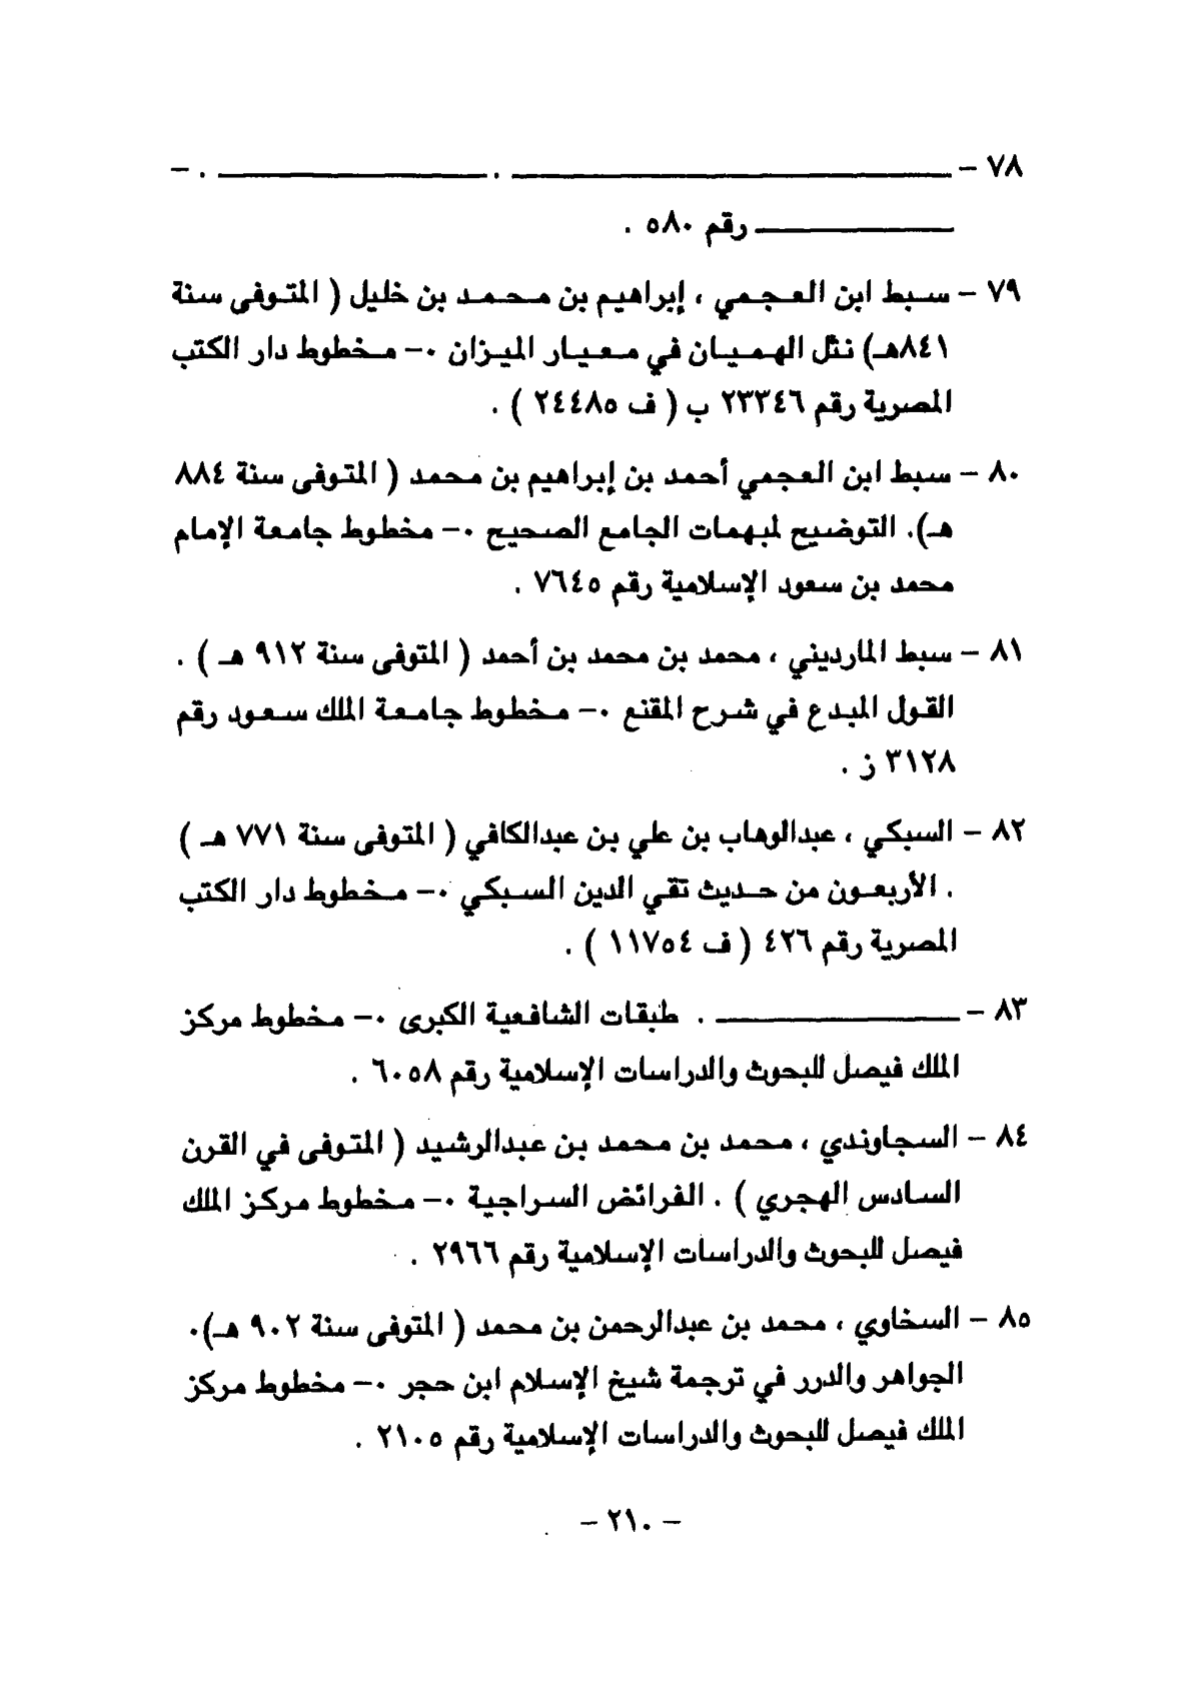 ٧٨ – ــــــــــــــــــــــــــــ . ــــــــــــــــــــــ . –
ــــــــــــــــــــ رقم ٥٨٠ .
٧٩ – سبط ابن العجمي ، إبراهيم بن محمد بن خليل ( المتوفى سنة
٨٤١هـ) نثل الهميان في معيار الميزان ٠– مخطوط دار الكتب
المصرية رقم ٢٣٣٤٦ ب ( ف ٢٤٤٨٥ ) .
٨٠ – سبط ابن العجمي أحمد بن إبراهيم بن محمد ( المتوفى سنة ٨٨٤
هـ). التوضيح لمبهمات الجامع الصحيح ٠– مخطوط جامعة الإمام
محمد بن سعود الإسلامية رقم ٧٦٤٥ .
٨١ – سبط المارديني ، محمد بن محمد بن أحمد ( المتوفى سنة ٩١٢ هـ ) .
القول المبدع في شرح المقنع ٠– مخطوط جامعة الملك سعود رقم
٣١٢٨ ز .
٨٢ – السبكي ، عبدالوهاب بن علي بن عبدالكافي ( المتوفى سنة ٧٧١ هـ )
. الأربعون من حديث تقي الدين السبكي ٠– مخطوط دار الكتب
المصرية رقم ٤٢٦ ( ف ١١٧٥٤ ) .
٨٣ – ــــــــــــــــــــ . طبقات الشافعية الكبرى ٠– مخطوط مركز
الملك فيصل للبحوث والدراسات الإسلامية رقم ٦٠٥٨ .
٨٤ – السجاوندي ، محمد بن محمد بن عبدالرشيد ( المتوفى في القرن
السادس الهجري ) . الفرائض السراجية ٠– مخطوط مركز الملك
فيصل للبحوث والدراسات الإسلامية رقم ٢٩٦٦ .
٨٥ – السخاوي ، محمد بن عبدالرحمن بن محمد ( المتوفى سنة ٩٠٢ هـ)٠
الجواهر والدرر في ترجمة شيخ الإسلام ابن حجر ٠– مخطوط مركز
الملك فيصل للبحوث والدراسات الإسلامية رقم ٢١٠٥ .
– ٢١٠ –